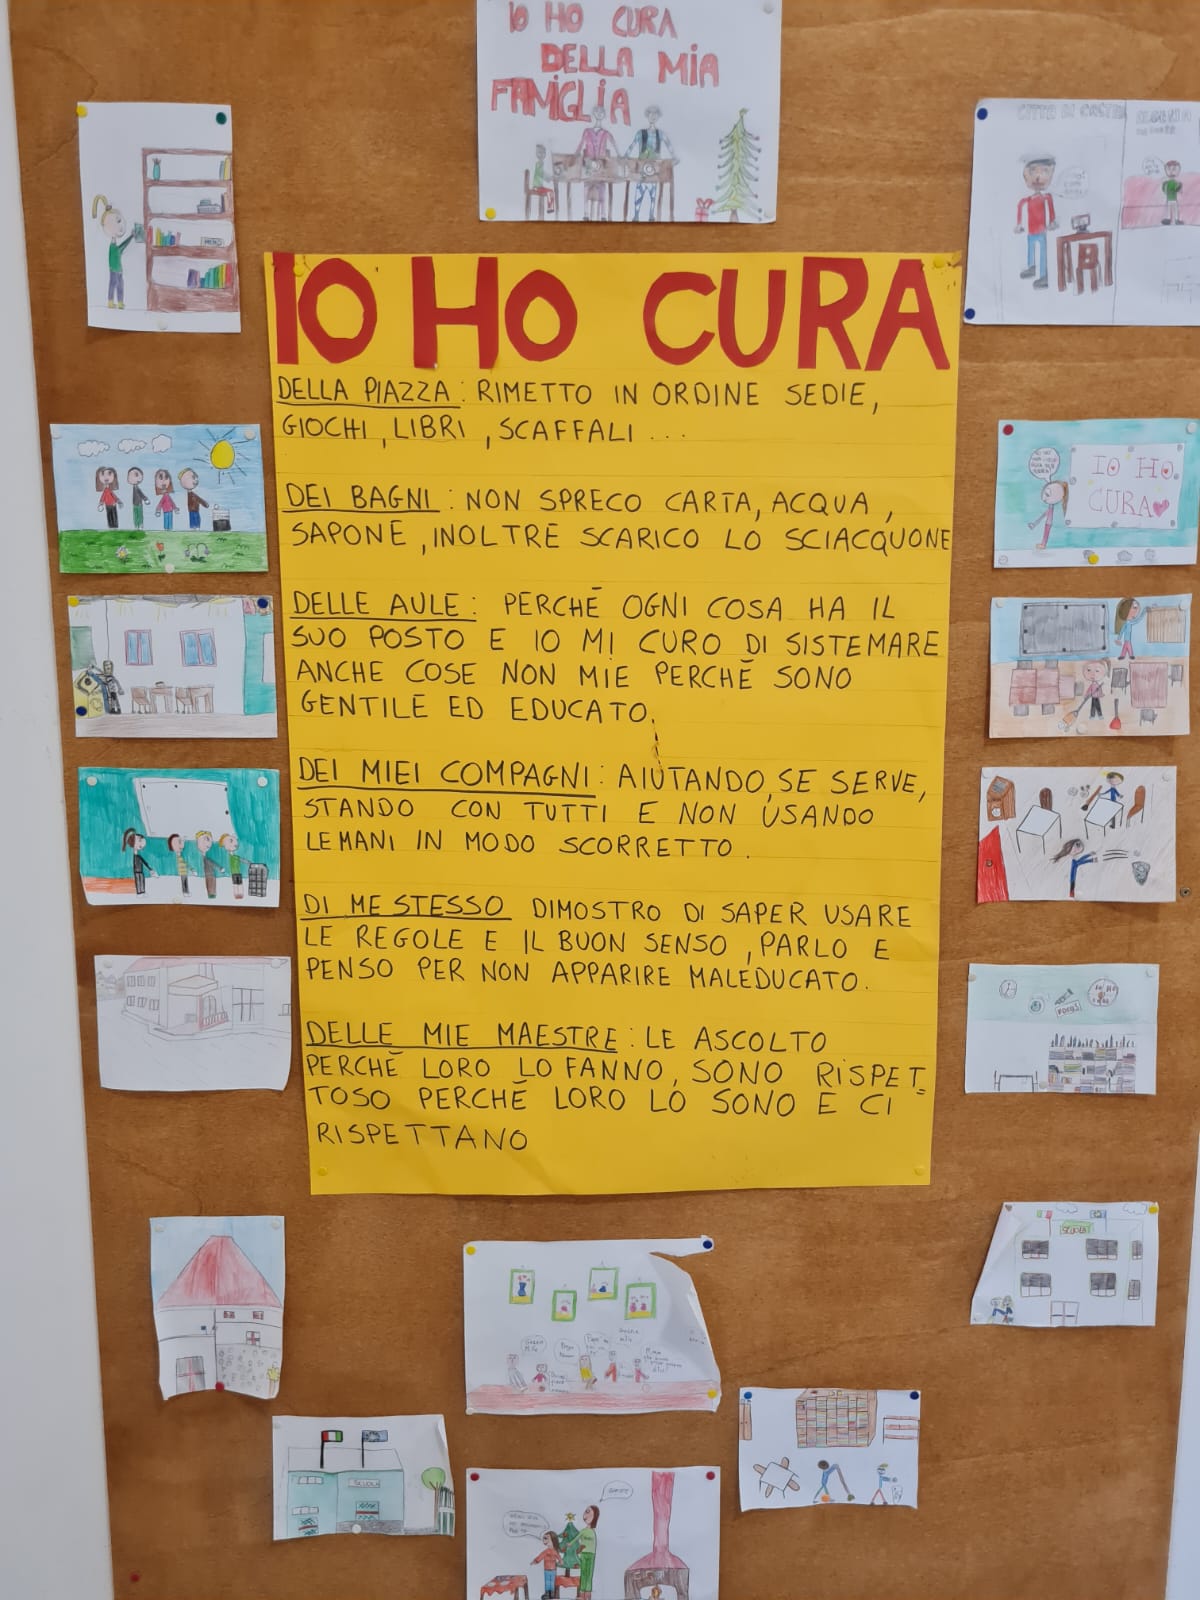 IO HO CURA
DELLA MIA
FAMIGLIA
IO HO CURA
DELLA PIAZZA: RIMETTO IN ORDINE SEDIE,
GIOCHI, LIBRI, SCAFFALI...
DEI BAGNI: NON SPRECO CARTA, ACQUA,
SAPONE, INOLTRE SCARICO LO SCIACQUONE
DELLE AULE: PERCHÉ OGNI COSA HA IL
SUO POSTO E IO MI CURO DI SISTEMARE
ANCHE COSE NON MIE PERCHÉ SONO
GENTILE ED EDUCATO.
DEI MIEI COMPAGNI: AIUTANDO, SE SERVE,
STANDO CON TUTTI E NON USANDO
LE MANI IN MODO SCORRETTO.
DI ME STESSO DIMOSTRO DI SAPER USARE
LE REGOLE E IL BUON SENSO, PARLO E
PENSO PER NON APPARIRE MALEDUCATO.
DELLE MIE MAESTRE: LE ASCOLTO
PERCHÉ LORO LO FANNO, SONO RISPET=
TOSO PERCHÉ LORO LO SONO E CI
RISPETTANO
CITTÀ DI
IO HO
CURA
FOCUS
SCUOLA
SCUOLA